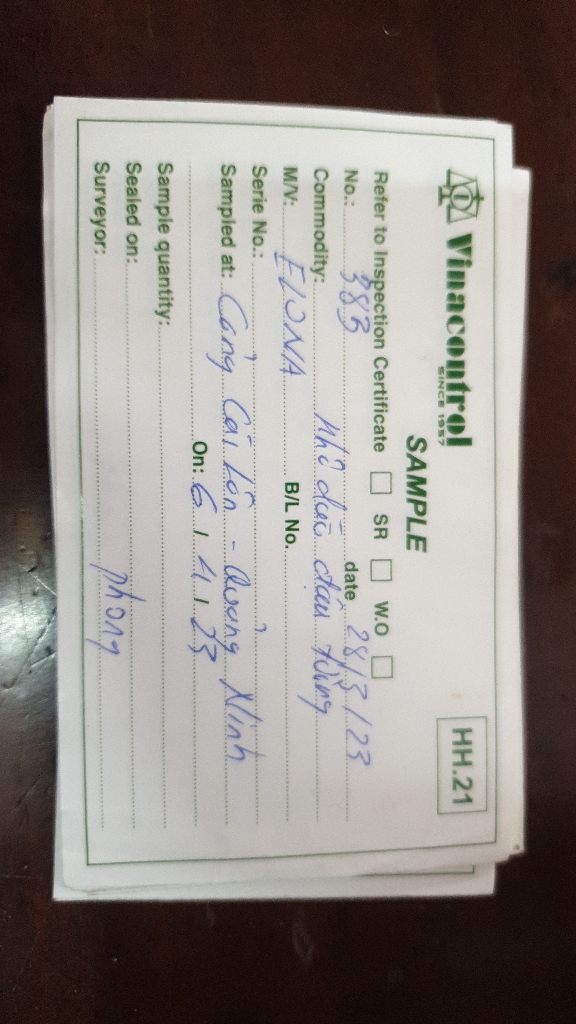 Vinacontrol
SINCE 1957
HH.21
SAMPLE
Refer to Inspection Certificate SR W.O
No.: 38B date 28/3/23
Commodity: đậu tương
M/V: ELONA B/L No.
Serie No.:
Sampled at: Cảng Cái Lân - Quảng Ninh
On: 6 / 4 / 23
Sample quantity:
Sealed on:
Surveyor: phong